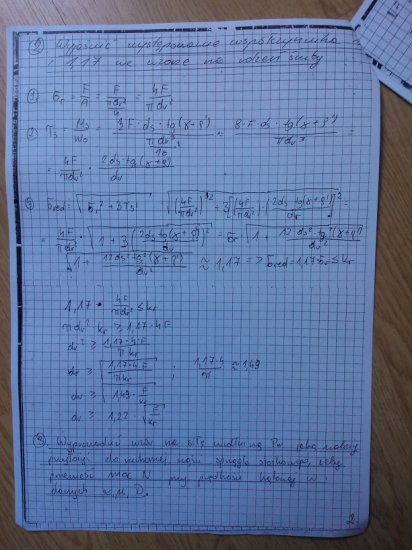 ② Wyjaśnić występowanie współczynnika
1,17 we wzorze na rdzeń śruby
① σr = F/A = F/(πdr²/4) = 4F/πdr²
② τs = Ms/W0 = (½F · ds · tg(γ+ρ'))/(πdr³/16) = 8·F·ds·tg(γ+ρ')/πdr³ =
= 4F/πdr² · 2ds·tg(γ+ρ')/dr
③ σred = √(σr² + 3τs²) √((4F/πdr²)² + 3[(4F/πdr²)·(2ds·tg(γ+ρ')/dr)]²) =
= 4F/πdr² · √(1 + 3(2ds·tg(γ+ρ')/dr)²) = σr · √(1 + 12ds²·tg²(γ+ρ')/dr²)
√(1 + 12ds²·tg²(γ+ρ')/dr²) ≈ 1,17 => σred = 1,17·σr ≤ kr
1,17 · 4F/πdr² ≤ kr
πdr² kr ≥ 1,17·4F
dr² ≥ 1,17·4·F/πkr
dr ≥ √(1,17·4·F/πkr) ; 1,17·4/π ≈ 1,49
dr ≥ √(1,49 · F/kr)
dr ≥ 1,22 · √(F/kr)
Wyprowadzić wzór na siłę
przenieść moc N przy prędkości kątowej ω i
danych α, μ, D.
2